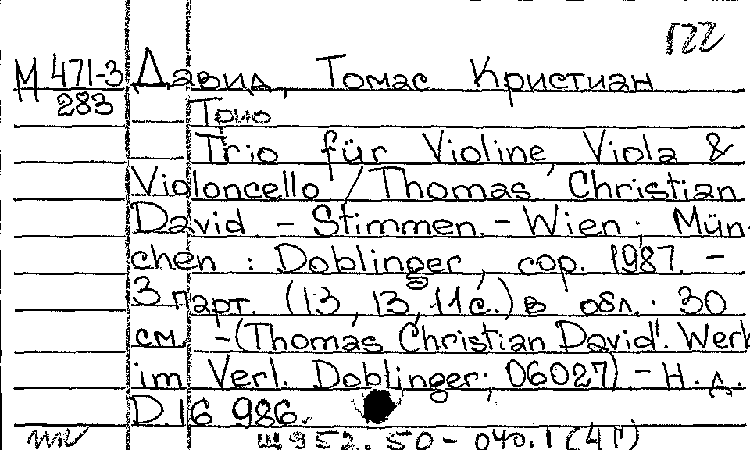 М 471-3 Давид, Томас Кристиан
283 Трио
Trio für Violine, Viola &
Violoncello / Thomas Christian
David. - Stimmen. - Wien ; Mün-
chen : Doblinger, cop. 1987. -
3 парт. (13, 13, 11 с.) в обл. ; 30
см. - (Thomas Christian David. Werk
im Verl. Doblinger; 06027) - Н. д.
D. 16 986.
Щ952.50-040.1(4П)